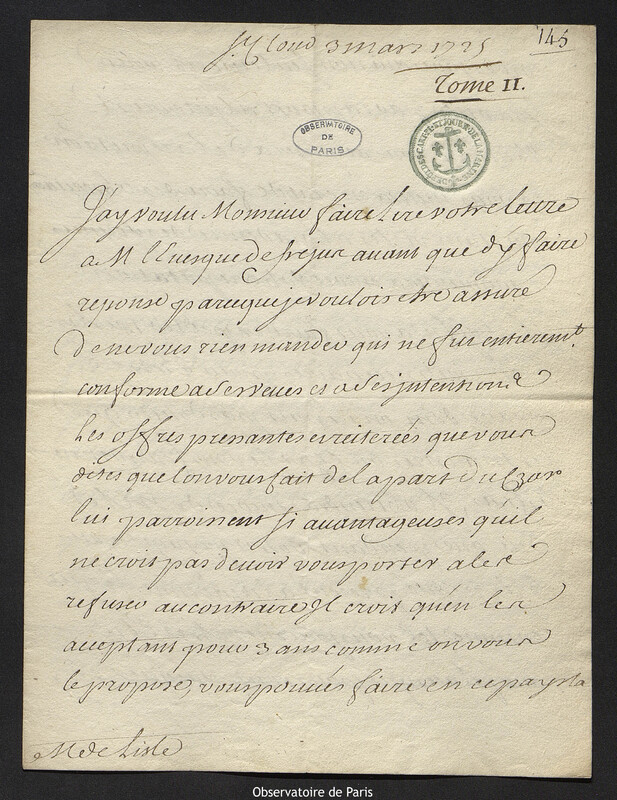 St Cloud 3 mars 1725
145
Tome II.
OBSERVATOIRE
DE
PARIS
J'ay voulu Monsieur faire Lire votre lettre
a M l'Evesque de frejus avant que d'y faire
reponse parceque je voulois etre assuré
de ne vous rien mander qui ne fut entierem.t
conforme a ses veues et a ses intentions
Les offres pressantes et reiterées que vous
dites que l'on vous fait de la part du Czar
lui parroissent si avantageuses qu'il
ne croit pas devoir vous porter a les
refuser au contraire Il croit qu'en les
acceptant pour 3 ans comme on vous
le propose, vous pouvés faire en ce pays la
M de Lisle
Observatoire de Paris